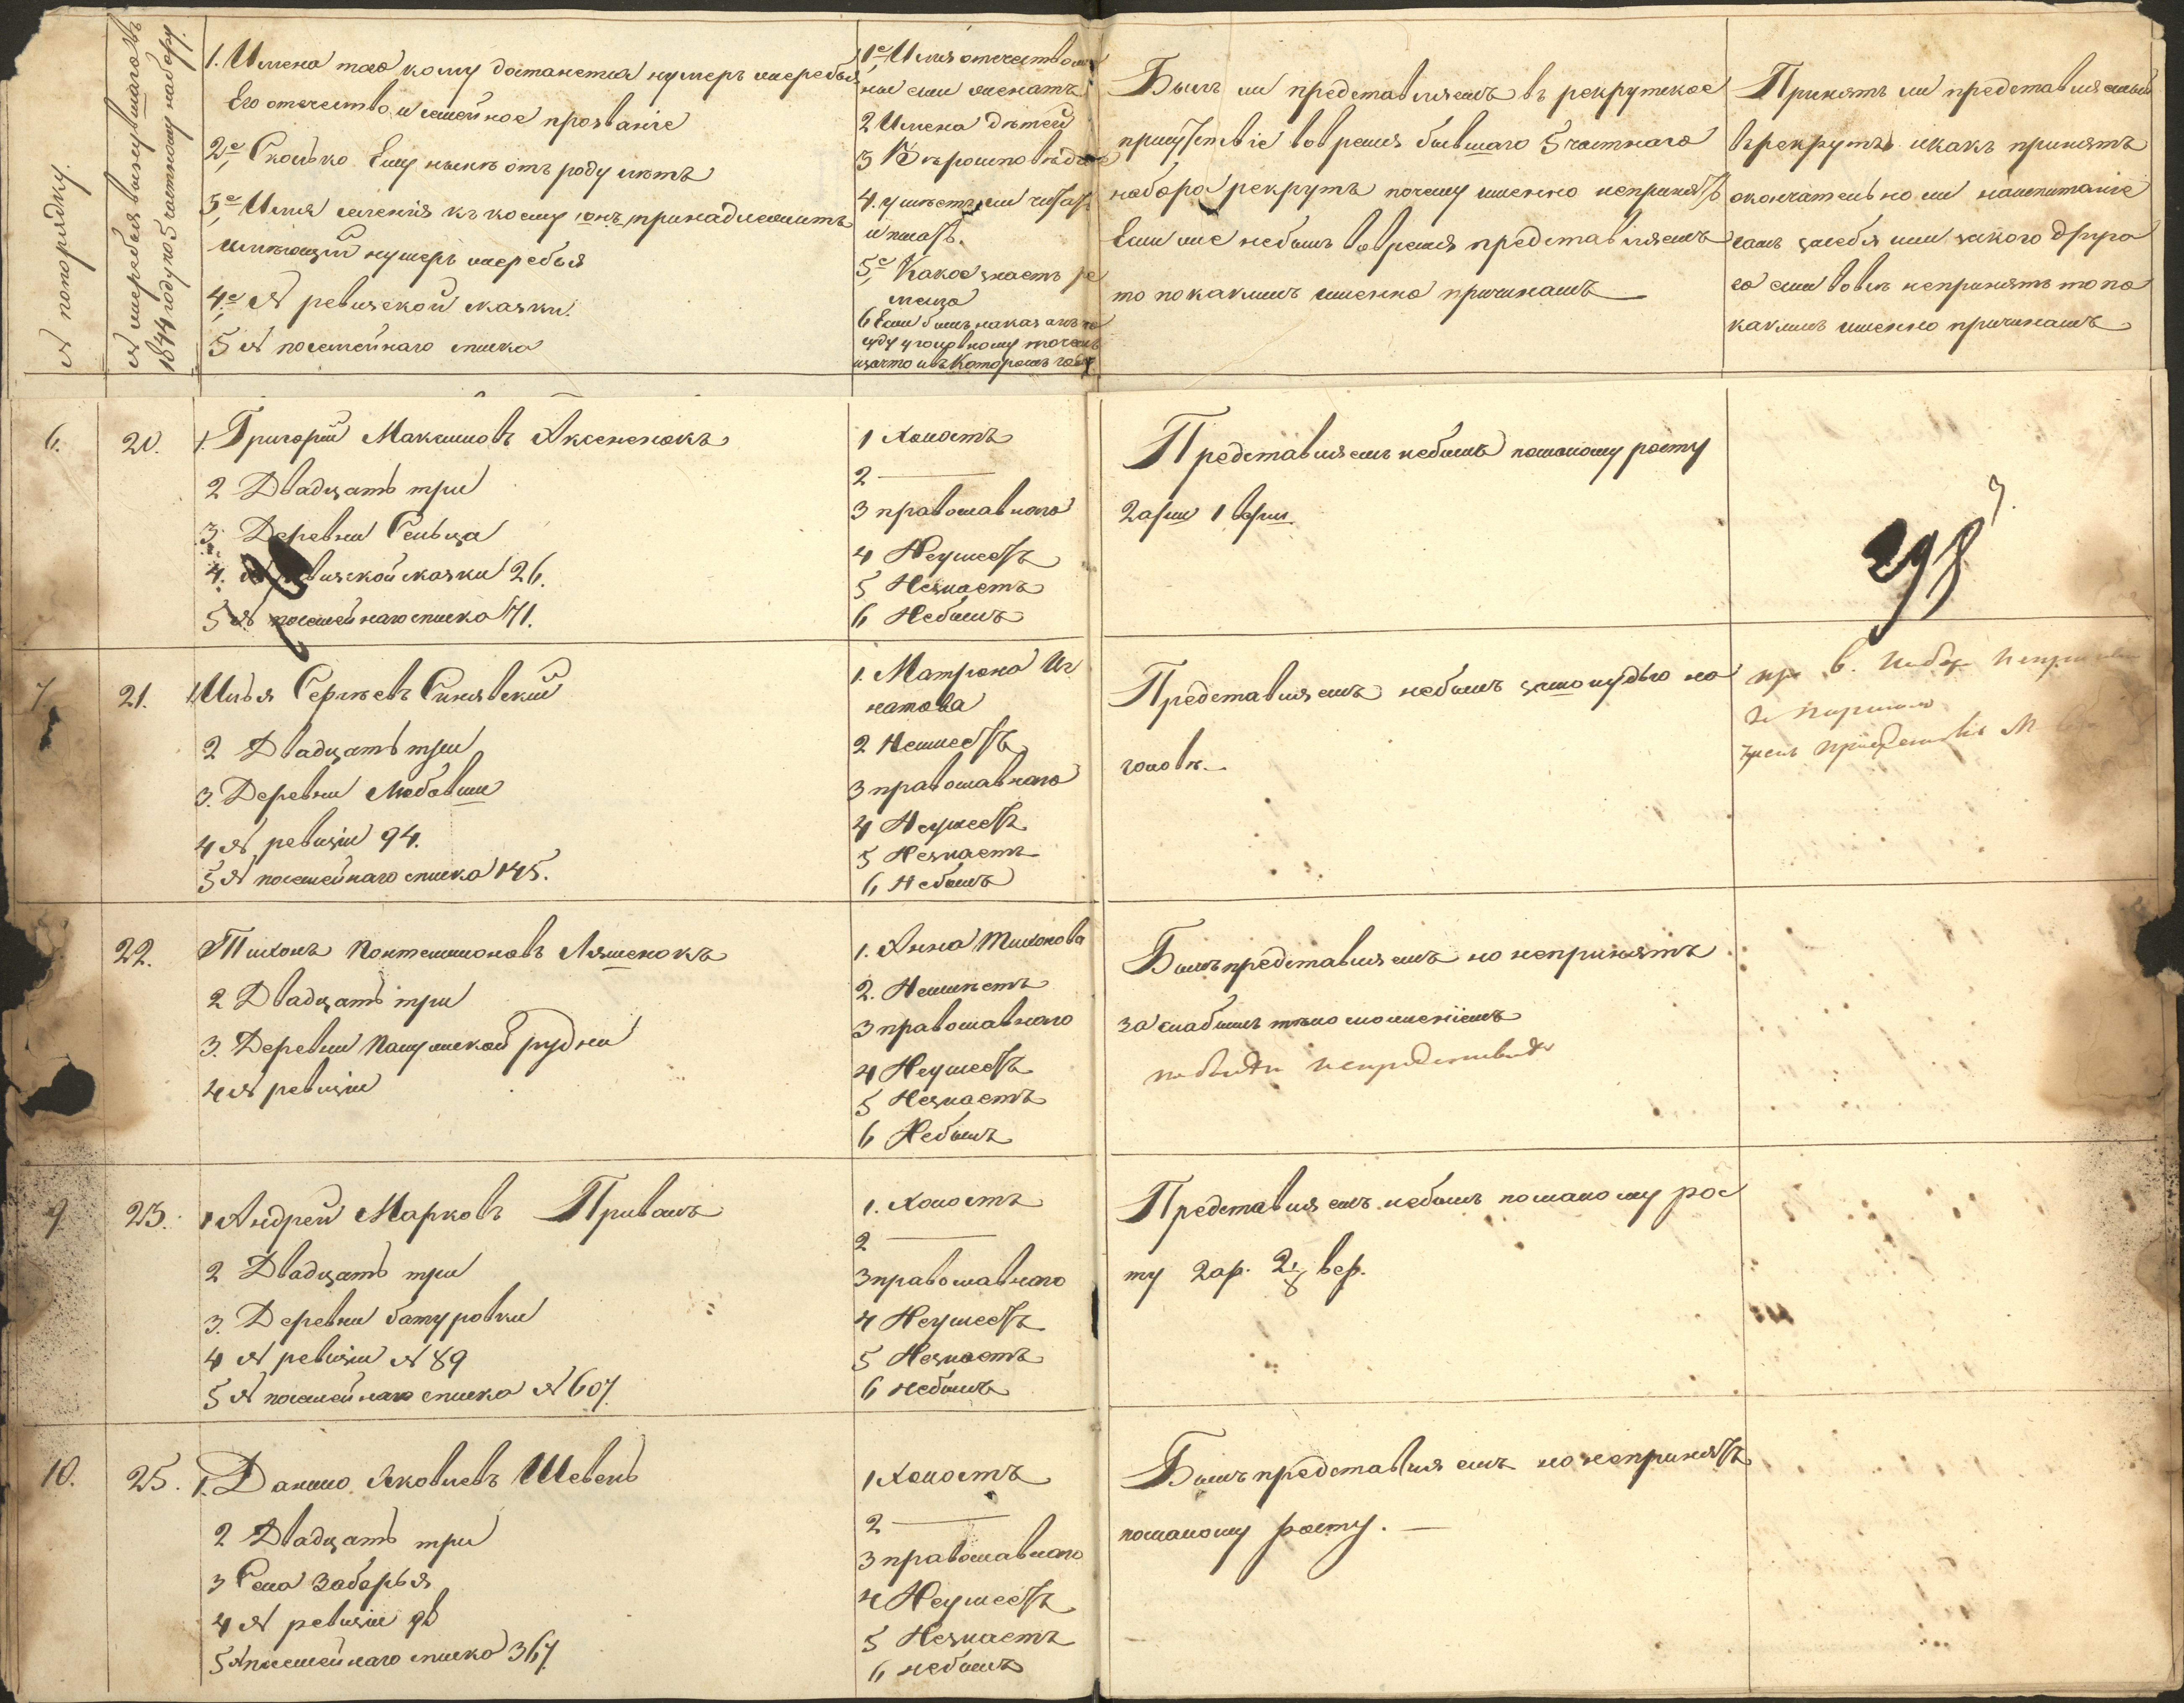 № попорядку.
№ жеребья вынувшагось
1844 году по 5 частному набору.
1. Имена того кому достанетца нумеръ жеребья
Его отечество и семейное прозваніе
2е, Сколько Ему нынѣ отъ роду лѣтъ
3е, Имя селенія къ коему онъ принадлежитъ
имеющій нумеръ жеребья
4е, № ревизской сказки.
5 № посемейнаго списка
1е, Имя отечество
ны если женатъ
2 Имена дѣтей
3 Вѣроисповѣд
4. умѣетъ ли читать
и писать.
5е, Какое знаетъ ре
месло
6 Если былъ наказанъ по
суду уголовному то
зачто и въ Которомъ году
Былъ ли представляемъ въ рекрутское
присутствіе вовремя бывшаго 5 частнаго
набора рекрутъ почему именно непринятъ
Если же небылъ вовремя представляемъ
то по какимъ именно причинамъ
Принятъ ли представляемый
врекруты икакъ принятъ
окончательно ли напитаніе
самъ засебя или закого друга
го если вовсе непринятъ то по
какимъ именно причинамъ
6. 20. 1. Григорій Максимовъ Аксененокъ
2 Двадцать три
3. Деревни Сельца
4. № ревизской сказки 26.
5 № посемейнаго списка 71.
1 Холостъ
2
3 православнаго
4 Неумеетъ
5 Незнаетъ
6 Небылъ
Представляемъ небылъ помалому росту
2 арш 1 верш.
298
7. 21. 1. Илья Сергѣевъ Синявскій
2 Двадцать три
3. Деревни Любовши
4 № ревизіи 94.
5 № посемейнаго списка 145.
1. Матрона Иг
натова
2 Неимеетъ
3 православнаго
4 Неумеетъ
5 Незнаетъ
6 Небылъ
Представляемъ небылъ на
головѣ.
22. Тихонъ Пантелимоновъ Ляшенокъ
2 Двадцать три
3. Деревни рудни
4 № ревизіи
1. Анна Тихонова
2. Неимѣетъ
3 православнаго
4 Неумеетъ
5 Незнаетъ
6 Небылъ
Былъ представляемъ но непринятъ
за слабымъ тѣлосложеніемъ
9 23. 1 Андрей Марковъ Приваль
2 Двадцать три
3. Деревни батуровки
4 № ревизіи № 89
5 № посемейнаго списка № 607.
1. Холостъ
2
3 православнаго
4 Неумеетъ
5 Незнаетъ
6 небылъ
Представляемъ небылъ помалому рос
ту 2 ар. 2 1/8 вер.
10. 25. 1. Данило Яковлевъ Шевень
2 Двадцать три
3 Села Заборья
4 № ревизіи
5 № посемейнаго списка 367.
1 Холостъ
2
3 православнаго
4 Неумеетъ
5 Незнаетъ
6 небылъ
Былъ представляемъ но непринятъ
помалому росту.